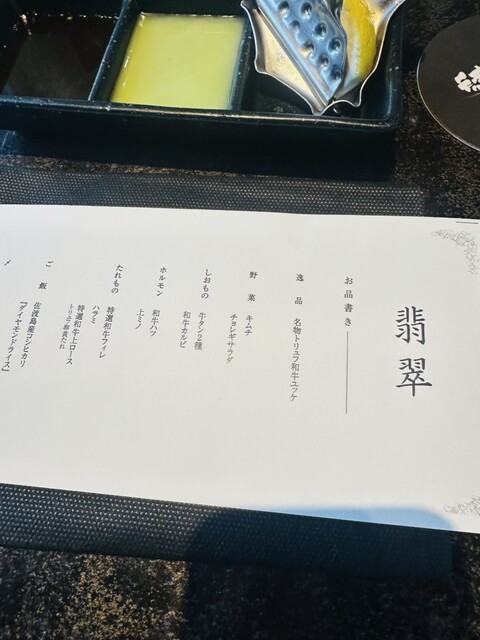 翡翠
お品書き
逸品 名物トリュフ和牛ユッケ
野菜 キムチ
チョレギサラダ
しおもの 牛タン2種
和牛カルビ
ホルモン 和牛ハツ
上ミノ
たれもの 特選和牛フィレ
ハラミ
特選和牛上ロース
トリュフ卵黄たれ
ご飯 佐渡島産コシヒカリ
『ダイヤモンドライス』
〆